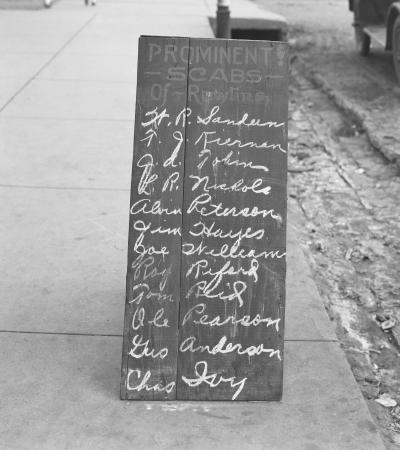 PROMINENT
— SCABS —
Of - Rawlins
H. R. Sanders
T. J. Kiernan
J. A. Tobin
L. R. Nichols
Alvin Peterson
Jim Hayes
Joe William
Roy Riford
Tom Reid
Ole Pearson
Gus Anderson
Chas Ivy